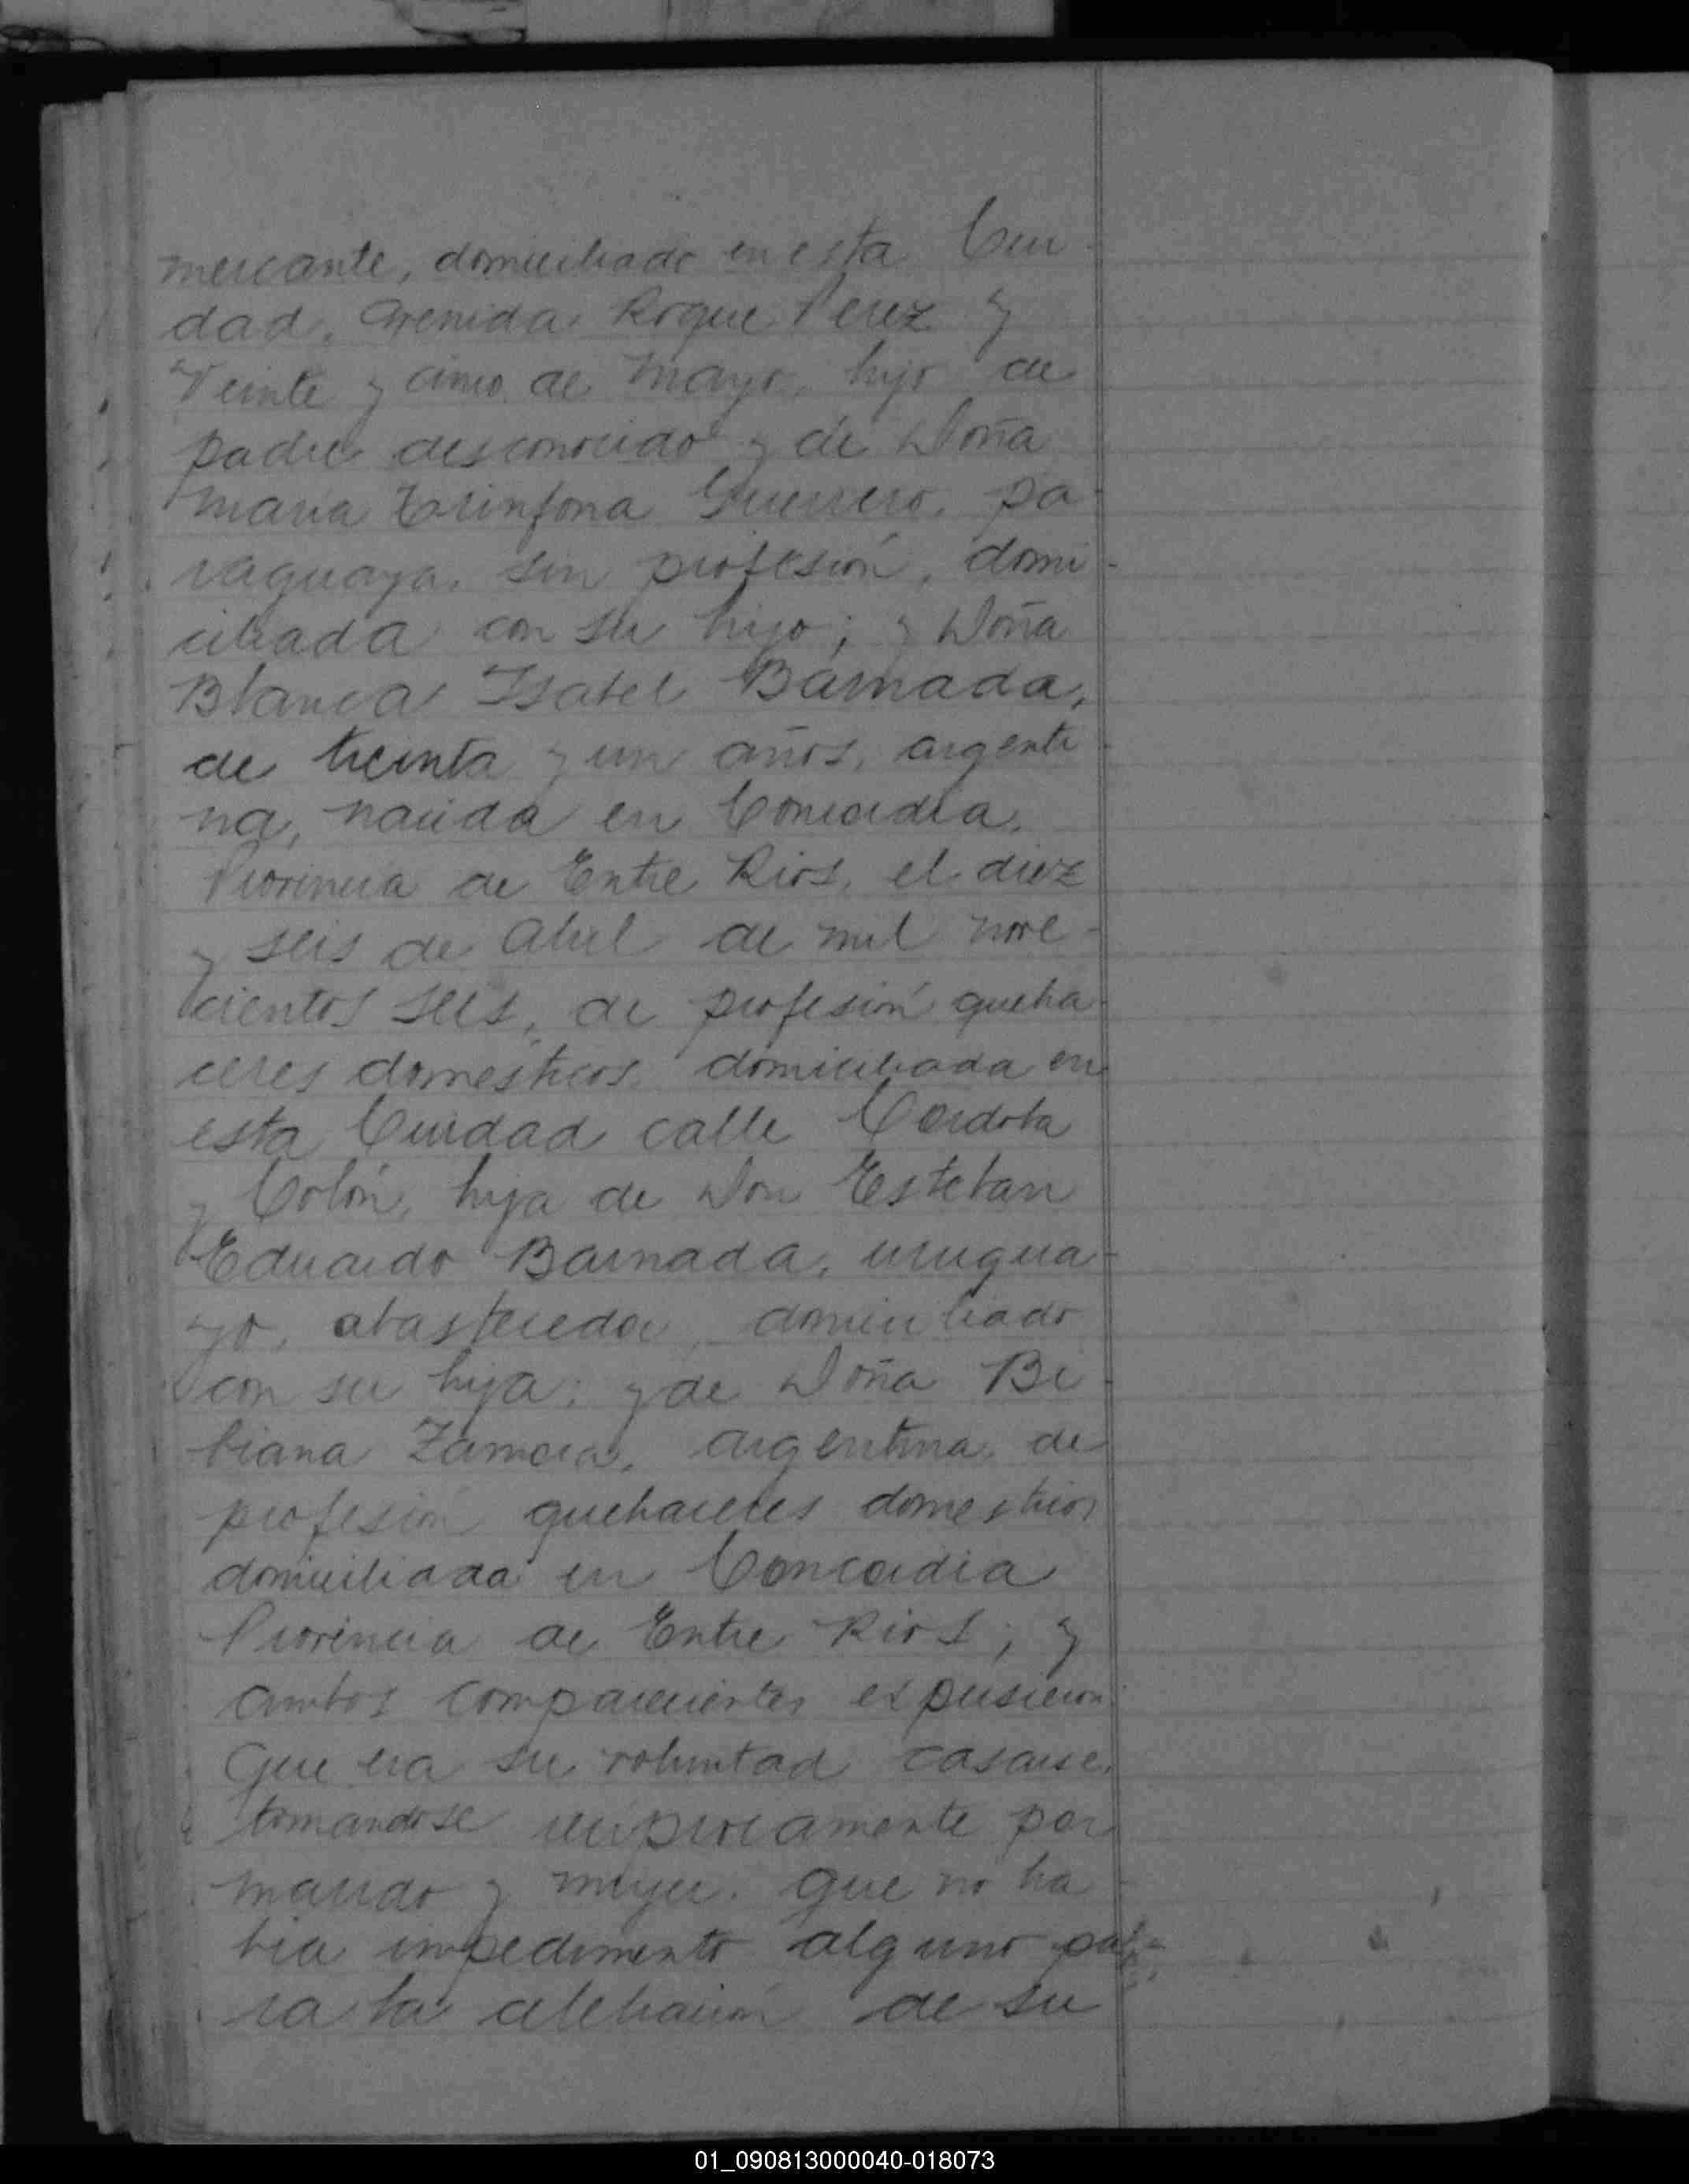 mercante, domiciliado en esta Ciu-
dad, Avenida Roque Perez y
Veinte y cinco de Mayo, hijo de
padre desconocido y de Doña
Maria Guerrero, pa-
raguaya, sin profesión, domi-
ciliada con su hijo; y Doña
Blanca Isabel Barnada,
de treinta y un años, argenti-
na, nacida en Concordia,
Provincia de Entre Rios, el diez
y seis de Abril de mil nove-
cientos seis, de profesión queha-
ceres domesticos, domiciliada en
esta Ciudad calle Cordoba
y Colón, hija de Don Esteban
Eduardo Barnada, urugua-
yo, abastecedor, domiciliado
con su hija; y de Doña Bi-
biana Zamora, argentina, de
profesión quehaceres domesticos
domiciliada en Concordia
Provincia de Entre Rios; y
ambos comparecientes expusieron
que era su voluntad casarse,
tomandose reciprocamente por
marido y mujer. Que no ha-
bia impedimento alguno pa-
ra la celebración de su
01_090813000040-018073